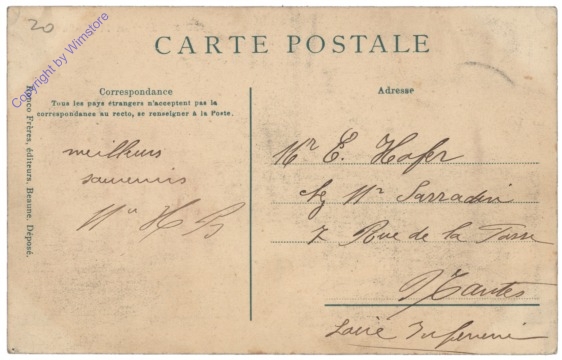 20
Copyright by Wimstore
CARTE POSTALE
Correspondance
Tous les pays étrangers n'acceptent pas la
correspondance au recto, se renseigner à la Poste.
Adresse
meilleurs
souvenirs
H B
Mr E. Hofer
chez Mr Sarradin
7 Rue de la Fosse
Nantes
Loire Inférieure
Ronco Frères, éditeurs, Beaune. Déposé.